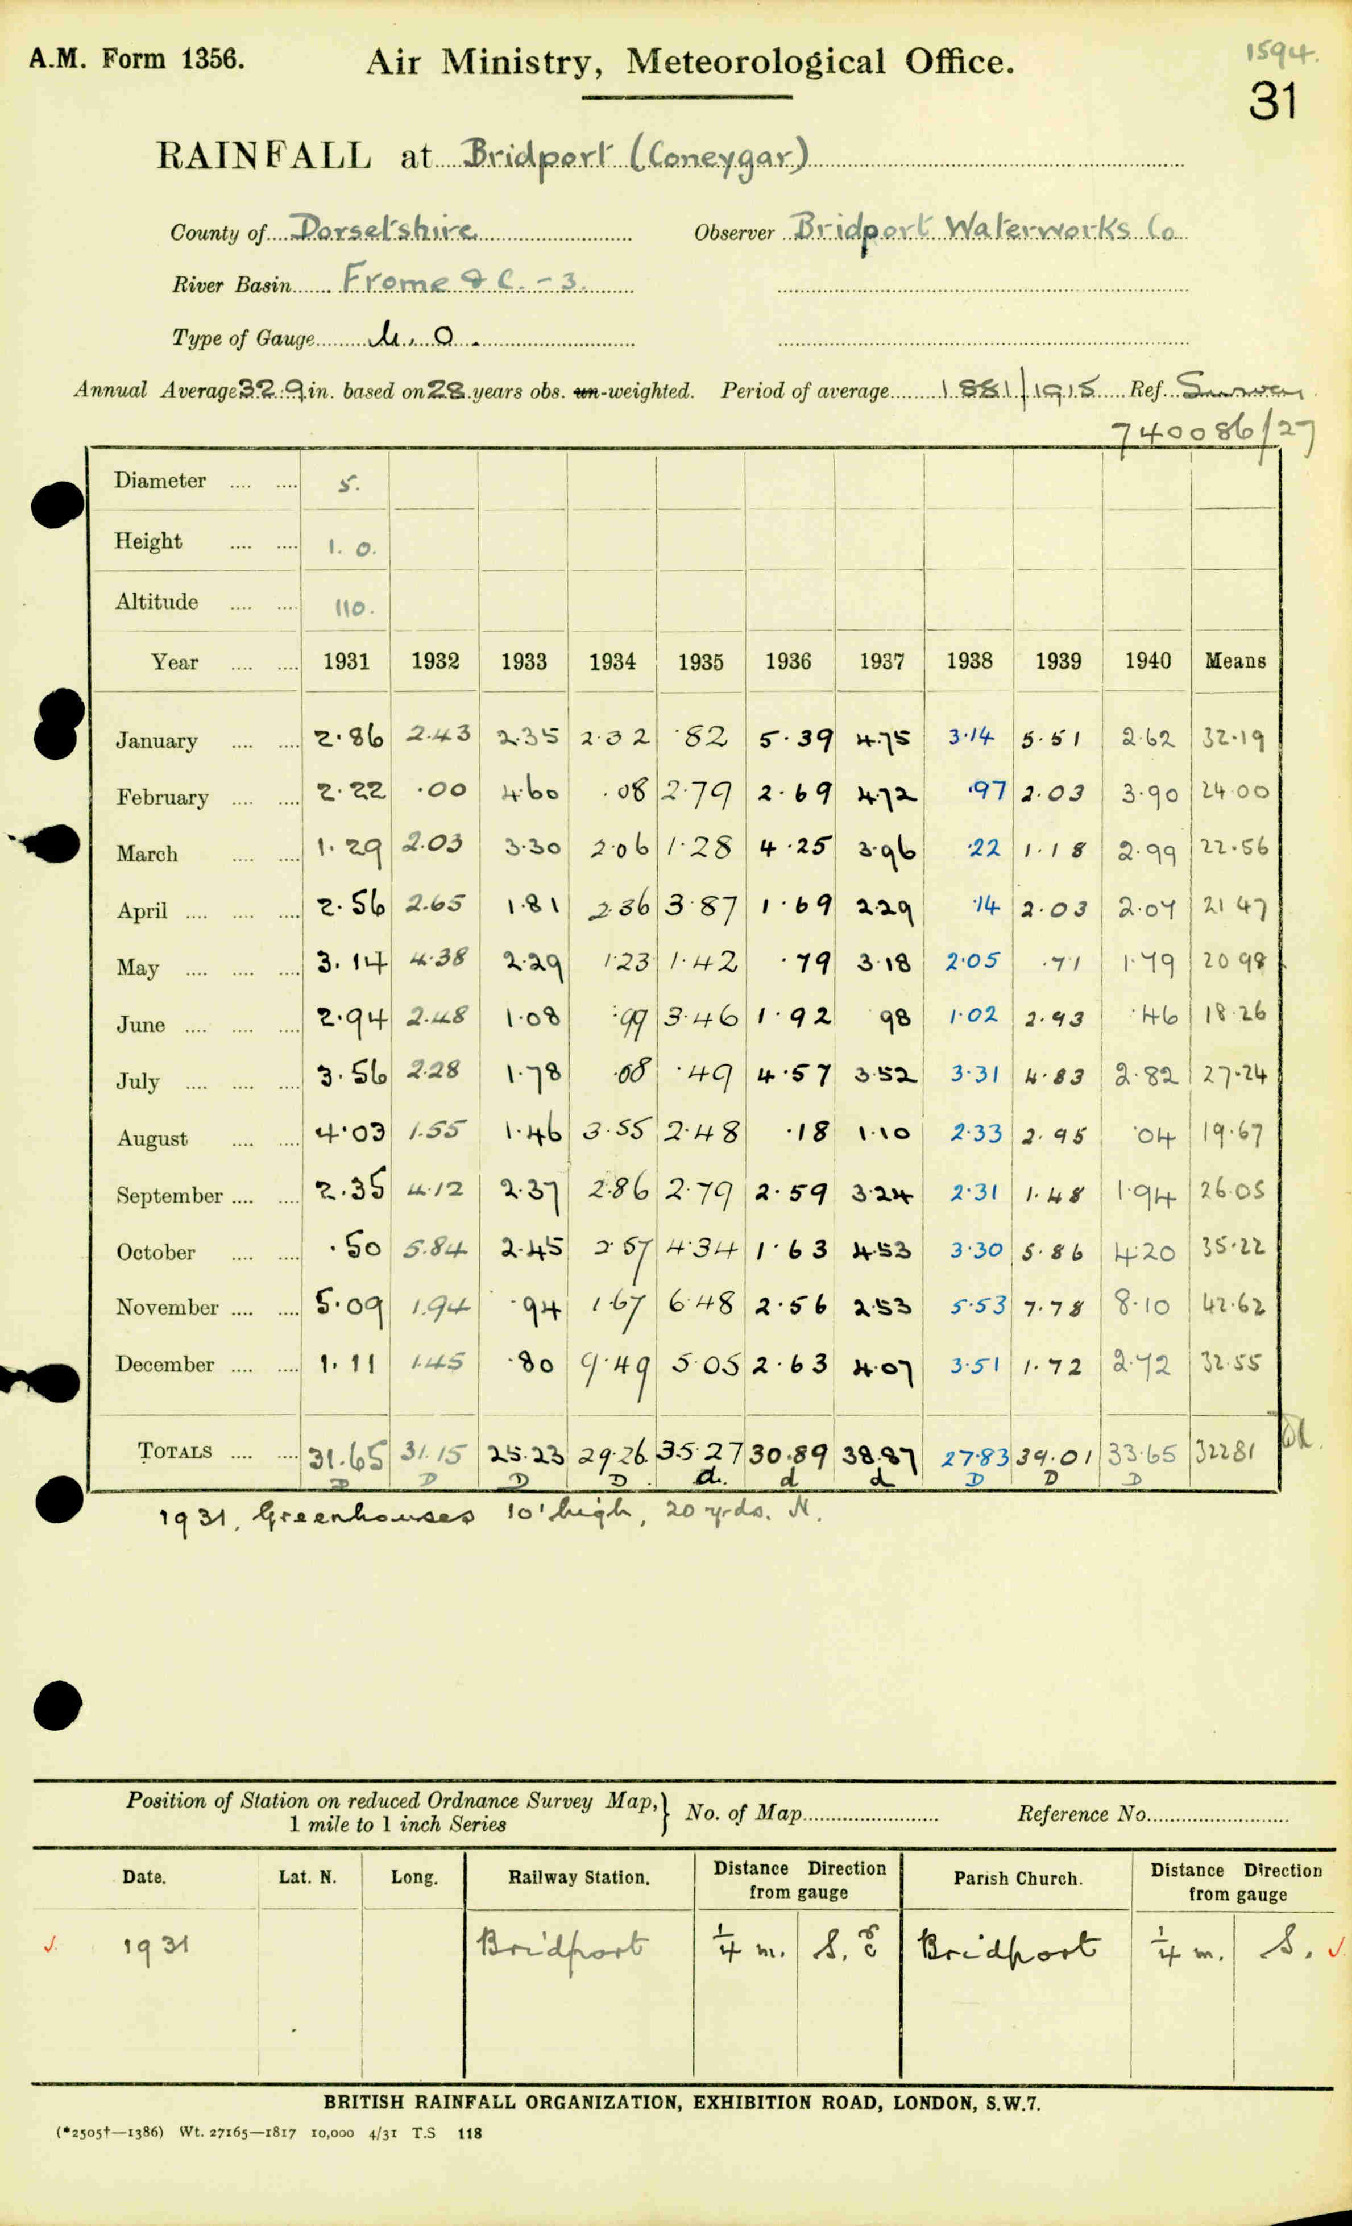 A.M. Form 1356. Air Ministry, Meteorological Office. 1594.
31
RAINFALL at Bridport (Coneygar)
County of Dorsetshire Observer Bridport Waterworks Co
River Basin Frome & C. - 3.
Type of Gauge M.O.
Annual Average 32.9 in. based on 28 years obs. un-weighted. Period of average 1881/1915 Ref. Survey
740086/27
Diameter 5.
Height 1. 0.
Altitude 110.
Year 1931 1932 1933 1934 1935 1936 1937 1938 1939 1940 Means
January 2.86 2.43 2.35 2.32 .82 5.39 4.75 3.14 5.51 2.62 32.19
February 2.22 .00 4.60 .08 2.79 2.69 4.72 .97 2.03 3.90 24.00
March 1.29 2.03 3.30 2.06 1.28 4.25 3.96 .22 1.18 2.99 22.56
April 2.56 2.65 1.81 2.36 3.87 1.69 2.29 .14 2.03 2.07 21 47
May 3.14 4.38 2.29 1.23 1.42 .79 3.18 2.05 .71 1.79 20 98
June 2.94 2.48 1.08 .99 3.46 1.92 98 1.02 2.93 .46 18.26
July 3.56 2.28 1.78 .08 .49 4.57 3.52 3.31 4.83 2.82 27.24
August 4.03 1.55 1.46 3.55 2.48 .18 1.10 2.33 2.95 .04 19.67
September 2.35 4.12 2.37 2.86 2.79 2.59 3.24 2.31 1.48 1.94 26.05
October .50 5.84 2.45 2.57 4.34 1.63 4.53 3.30 5.86 4.20 35.22
November 5.09 1.94 .94 1.67 6.48 2.56 2.53 5.53 7.78 8.10 42.62
December 1.11 1.45 .80 9.49 5.05 2.63 4.07 3.51 1.72 2.72 32.55
TOTALS 31.65 31.15 25.23 29.26 35.27 30.89 38.87 27.83 39.01 33.65 322.81
D D D D d. d d D D D
1931. Greenhouses 10' high, 20 yrds. N.
Position of Station on reduced Ordnance Survey Map, } No. of Map Reference No.
1 mile to 1 inch Series
Date. Lat. N. Long. Railway Station. Distance Direction from gauge Parish Church. Distance Direction from gauge
1931 Bridport 1/4 m. Bridport 1/4 m. S.
BRITISH RAINFALL ORGANIZATION, EXHIBITION ROAD, LONDON, S.W.7.
(*2505†—1386) Wt. 27165—1817 10,000 4/31 T.S 118